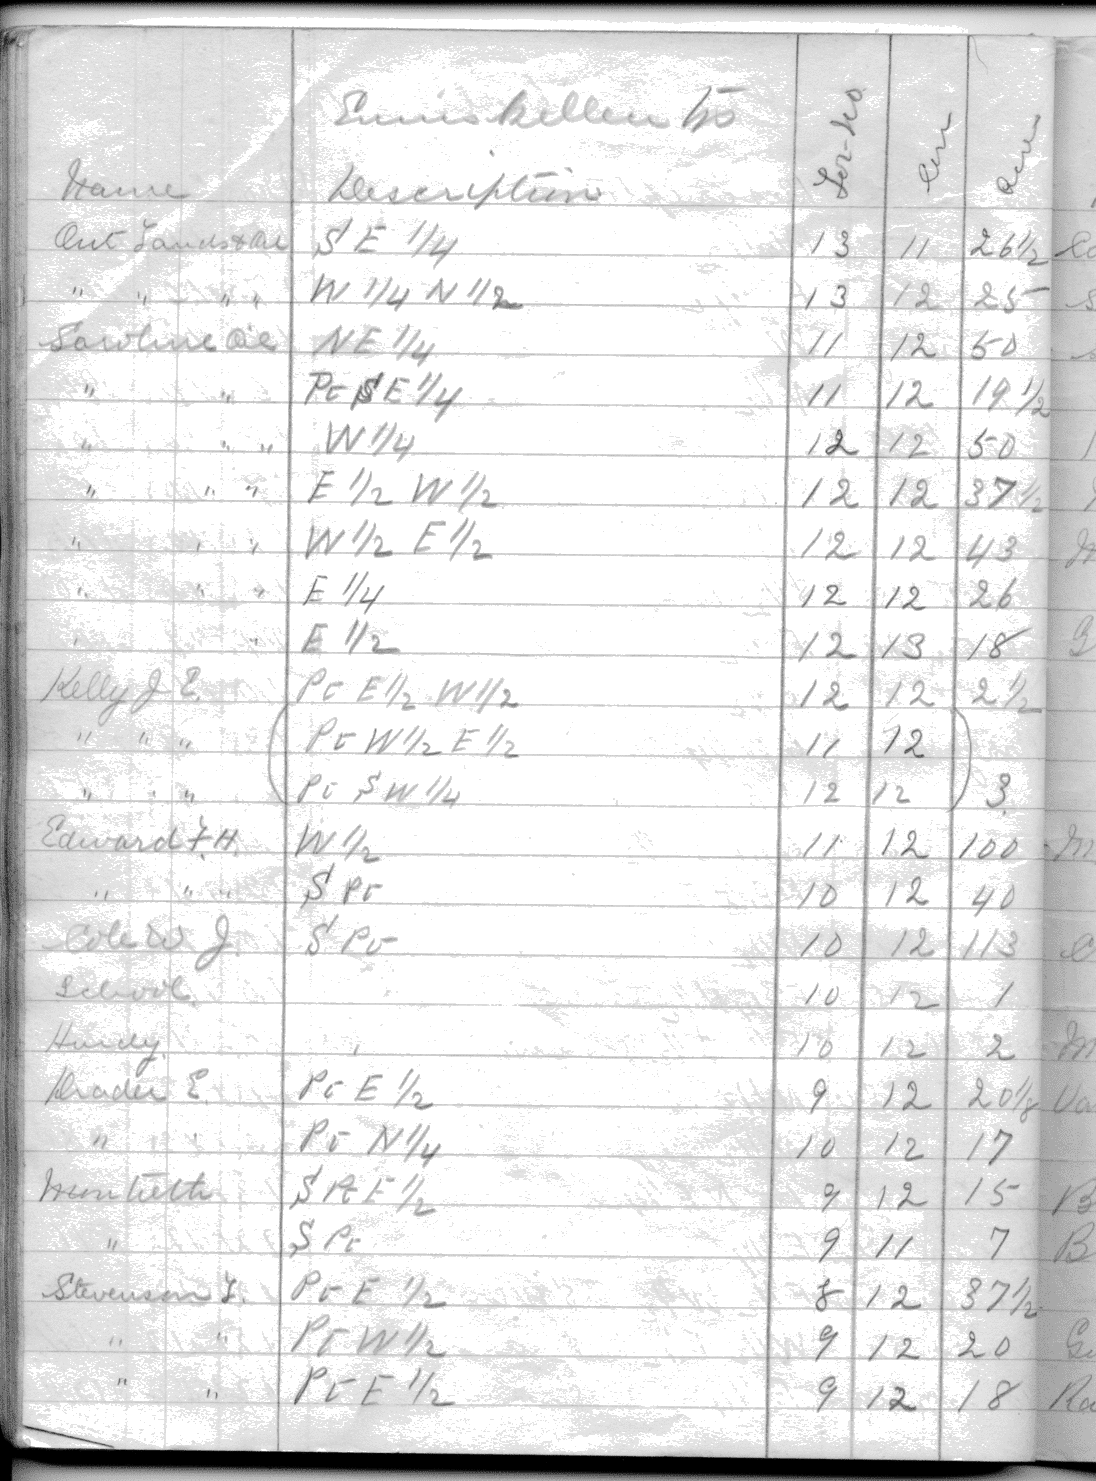 Enniskillen Tp
Name Description Lot-No Con Acres
Ont Lands & Oil S E 1/4 13 11 26 1/2
" " " " W 1/4 N 1/2 13 12 25
Oil N E 1/4 11 12 50
" " Pt S E 1/4 11 12 19 1/2
" " " W 1/4 12 12 50
" " " E 1/2 W 1/2 12 12 37 1/2
" " " W 1/2 E 1/2 12 12 43
" " " E 1/4 12 12 26
" " E 1/2 12 13 18
Kelly J E. Pt E 1/2 W 1/2 12 12 2 1/2
" " " Pt W 1/2 E 1/2 11 12
" " " Pt S W 1/4 12 12 3
Edward F. H. W 1/2 11 12 100
" " " S Pt 10 12 40
Cole W J. S Pt 10 12 113
School 10 12 1
Hardy 10 12 2
Drader E. Pt E 1/2 9 12 20 1/8
" " Pt N 1/4 10 12 17
Monteith S Pt E 1/2 9 12 15
" S Pt 9 11 7
Stevenson F. Pt E 1/2 8 12 37 1/2
" " Pt W 1/2 9 12 20
" " Pt E 1/2 9 12 18